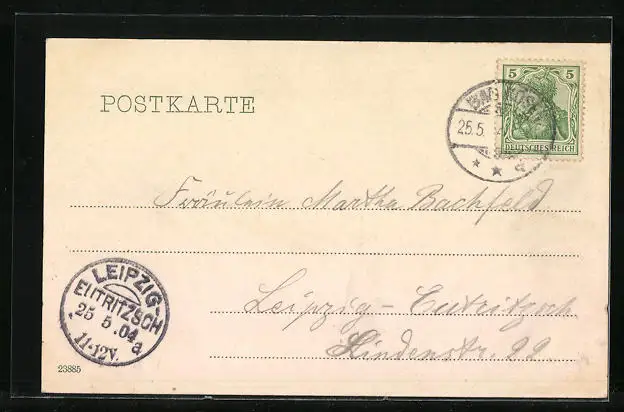 POSTKARTE
5 5
DEUTSCHES REICH
BAD
25.5.
a
Fräulein Martha Bachfeld
Leipzig-Eutritzsch
Lindenstr. 22.
LEIPZIG-
EUTRITZSCH
25 5.04
11-12V. a
23885